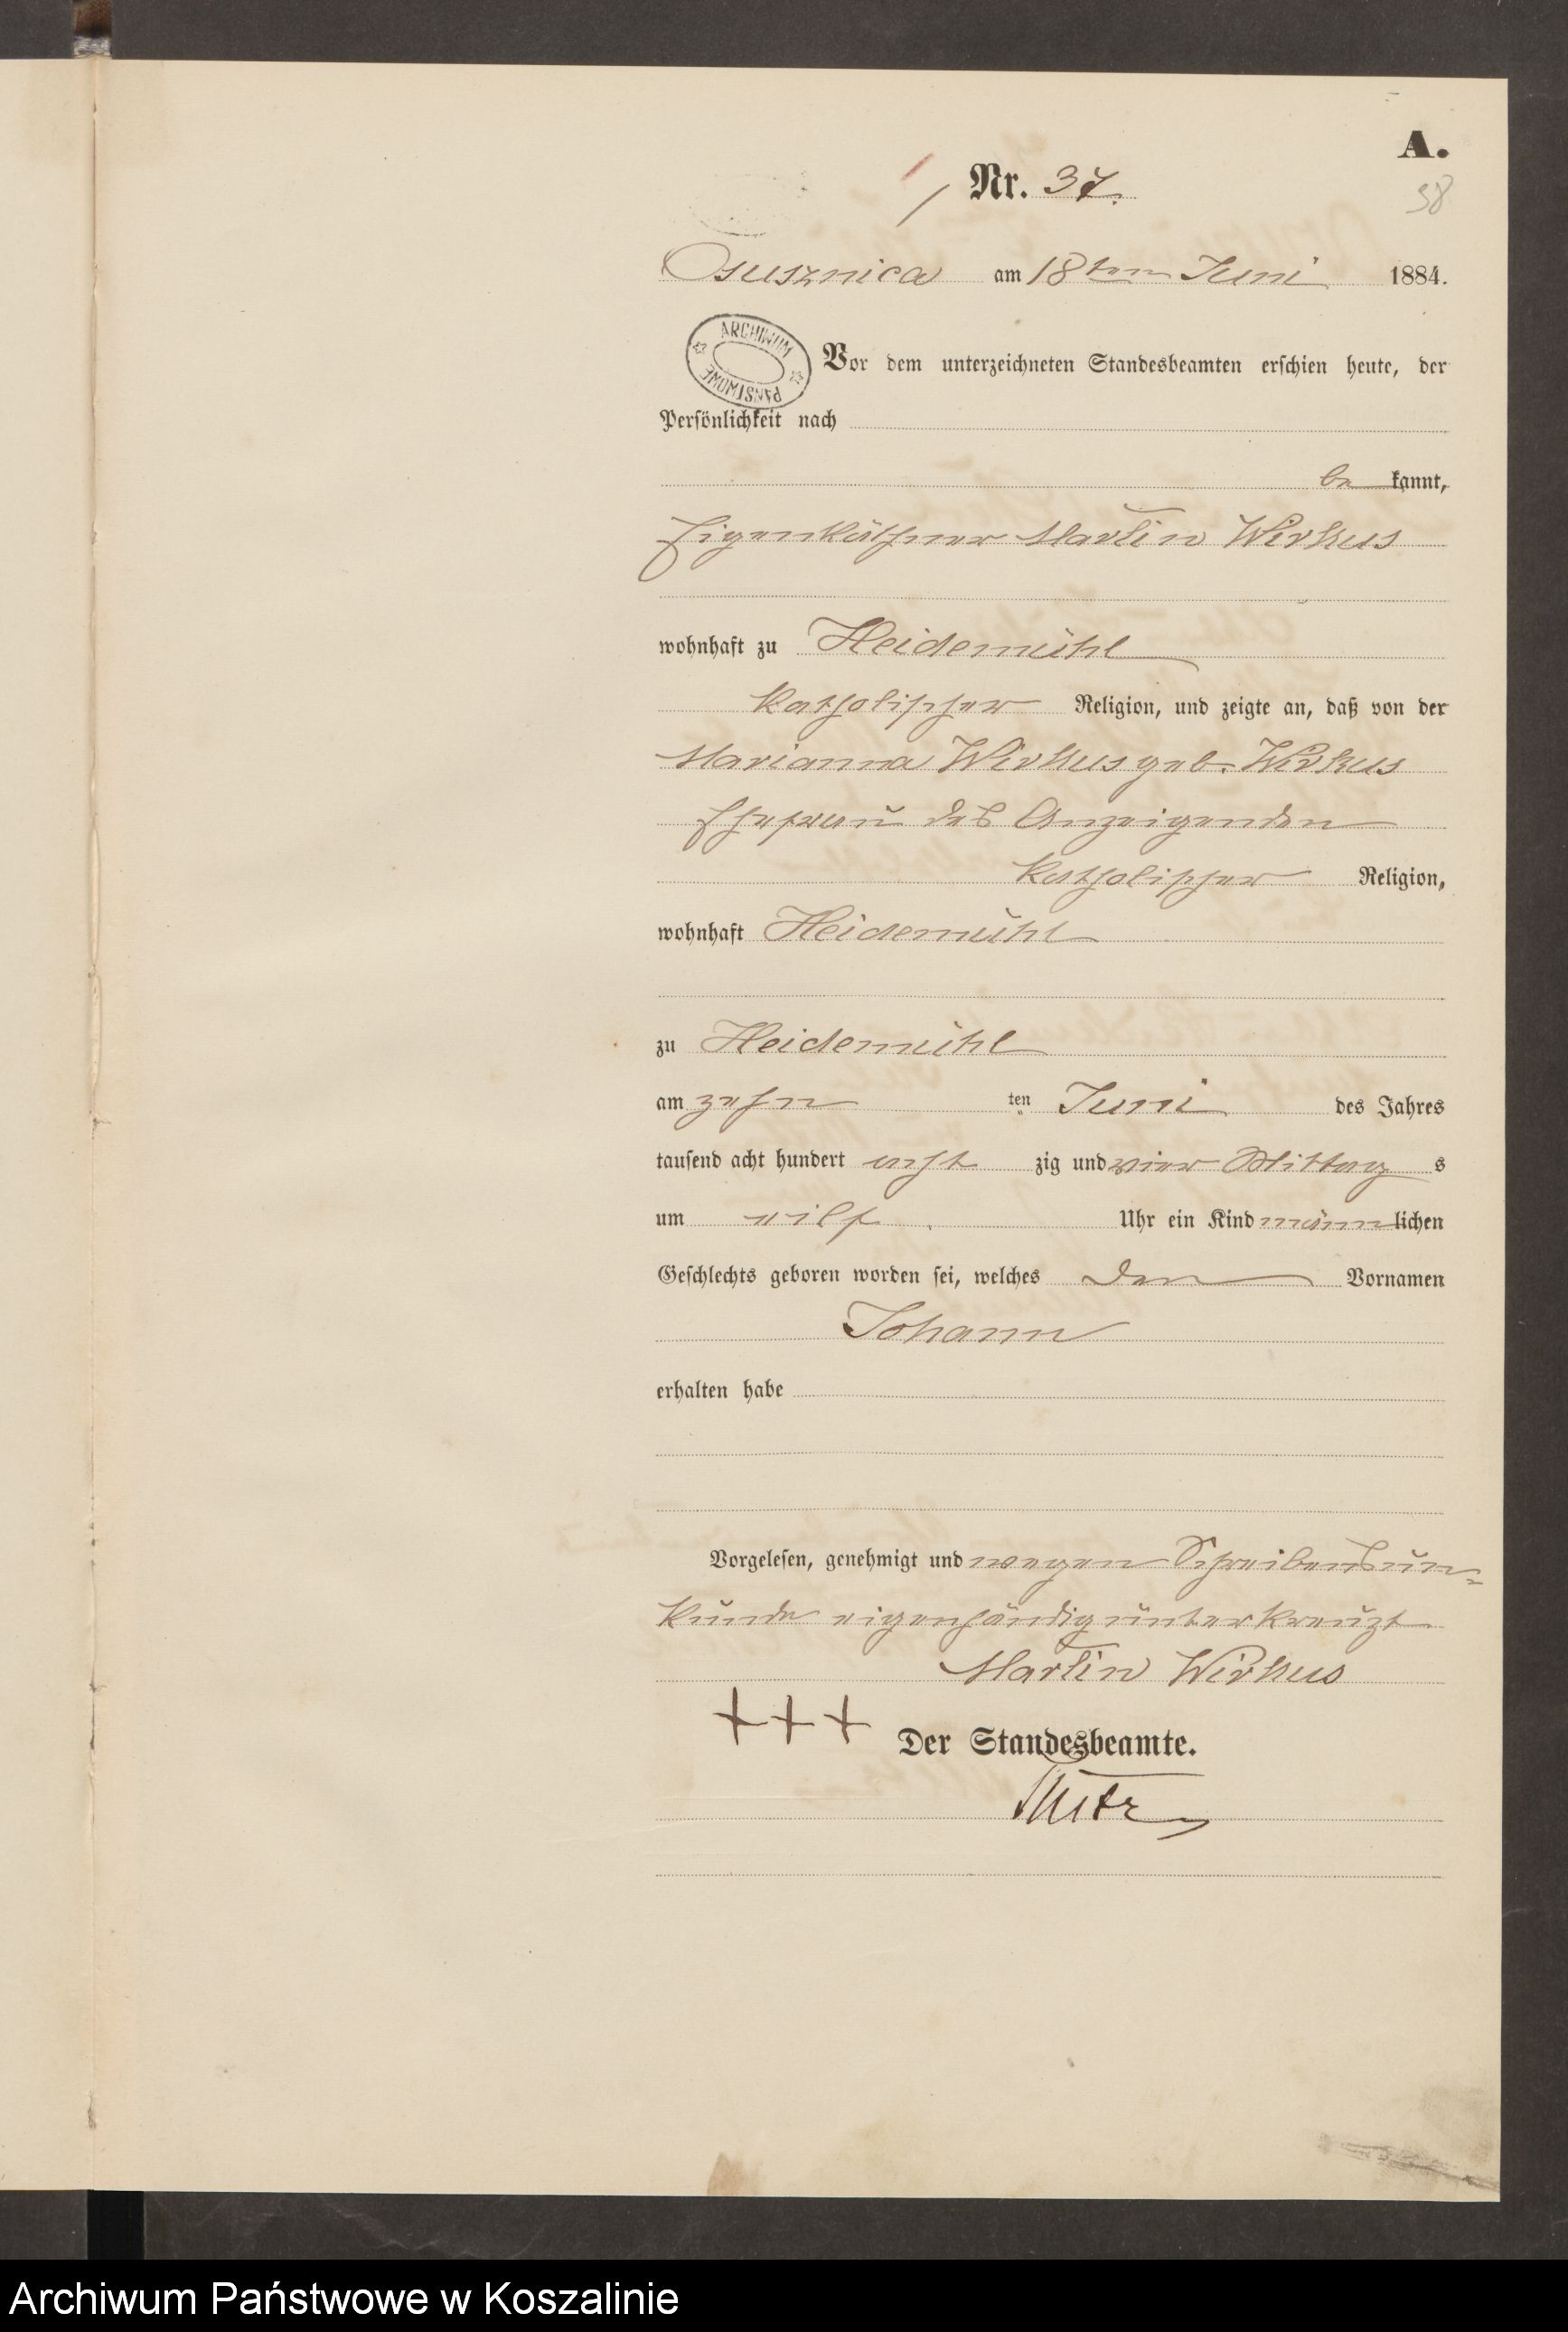 A.
Nr. 37.
38
Osusznica am 18ten Juni 1884.
ARCHIWUM PAŃSTWOWE
Vor dem unterzeichneten Standesbeamten erschien heute, der
Persönlichkeit nach
be kannt,
Eigenkäthner Martin Wirkus
wohnhaft zu Heidemühl
katholischer Religion, und zeigte an, daß von der
Marianna Wirkus geb. Wirkus
Ehefrau des Anzeigenden
katholischer Religion,
wohnhaft Heidemühl
zu Heidemühl
am zehn ten Juni des Jahres
tausend acht hundert acht zig und vier Mittag s
um Uhr ein Kind männlichen
Geschlechts geboren worden sei, welches den Vornamen
Johann
erhalten habe
Vorgelesen, genehmigt und wegen Schreibensun-
kunde eigenhändig unterkreuzt
Martin Wirkus
+++
Der Standesbeamte.
Archiwum Państwowe w Koszalinie